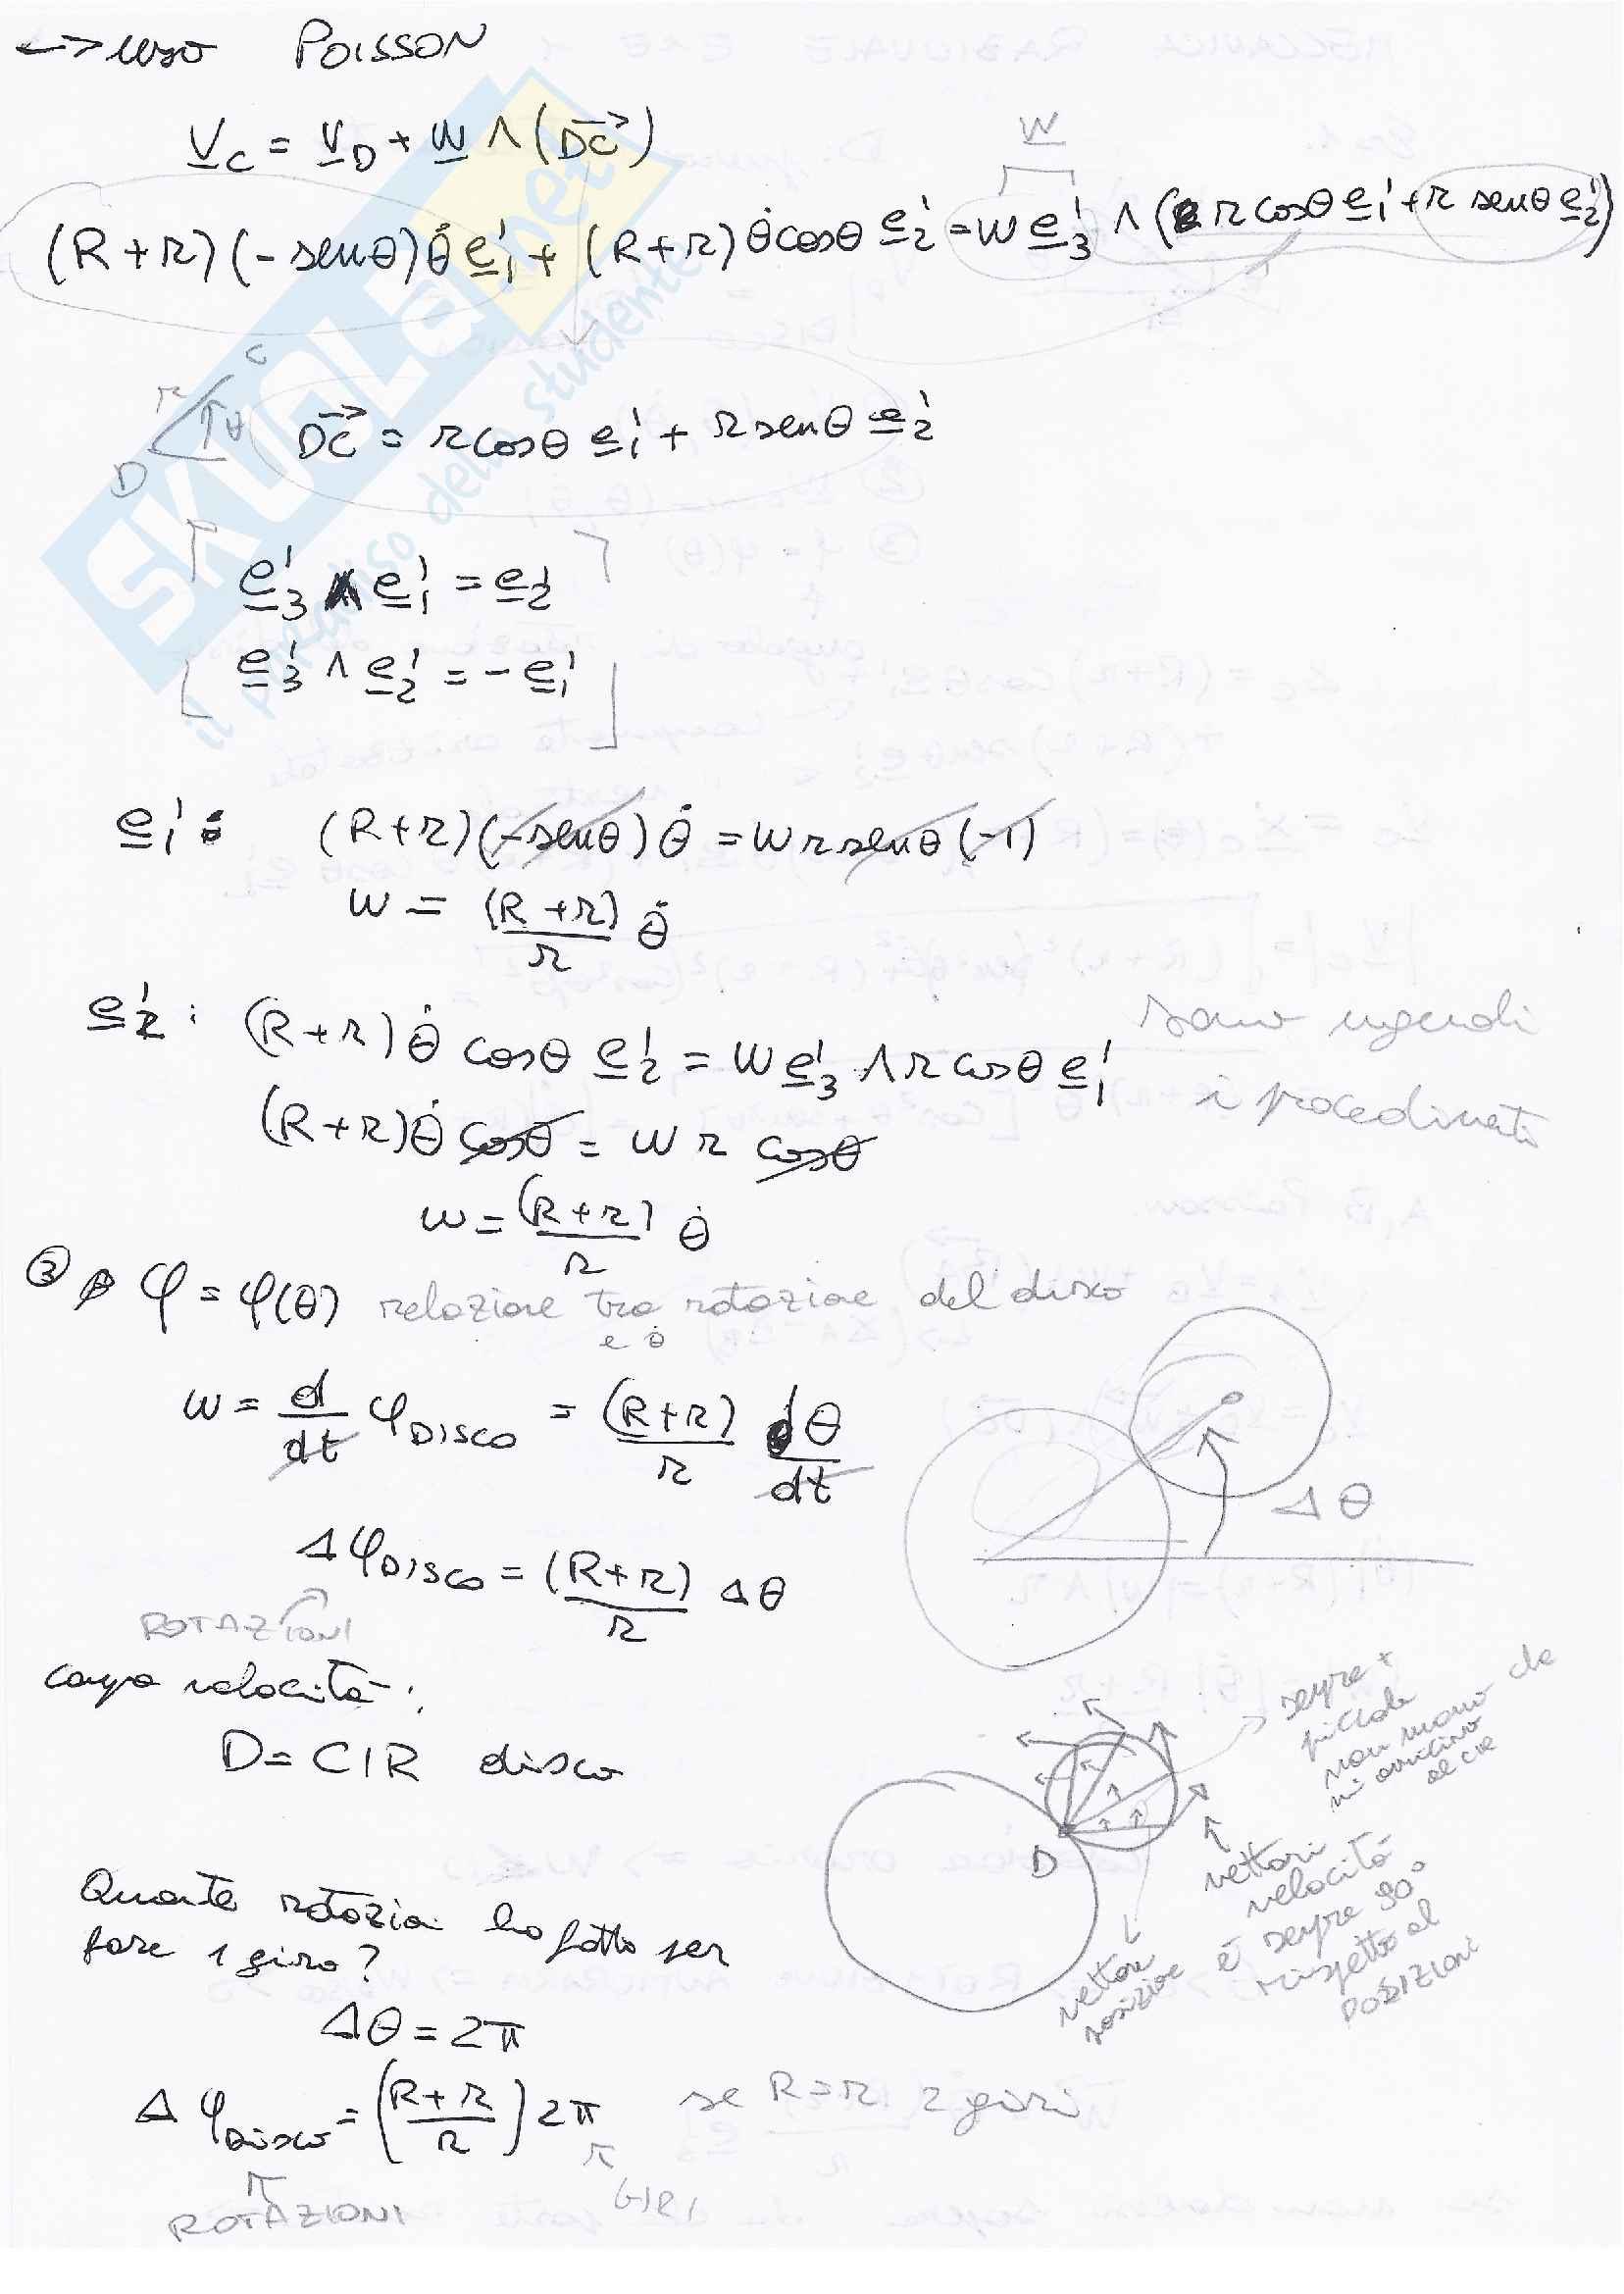 <-> uso POISSON
V_C = V_D + W ∧ (DC→)
W
(R+r)(-senθ)θ̇ e'_1 + (R+r)θ̇ cosθ e'_2 = W e'_3 ∧ (r cosθ e'_1 + r senθ e'_2)
C
r
θ
D
DC→ = r cosθ e'_1 + r senθ e'_2
e'_3 ∧ e'_1 = e'_2
e'_3 ∧ e'_2 = - e'_1
e'_1 : (R+r)(-senθ)θ̇ = W r senθ (-1)
W = (R+r)/r θ̇
e'_2 : (R+r)θ̇ cosθ e'_2 = W e'_3 ∧ r cosθ e'_1
sono uguali
i procedimenti
(R+r)θ̇ cosθ = W r cosθ
W = (R+r)/r θ̇
③ φ = φ(θ) relazione tra rotazione del disco
e θ
W = d/dt φ_DISCO = (R+r)/r dθ/dt
Δθ
Δφ_DISCO = (R+r)/r Δθ
ROTAZIONI
campo velocità:
D = CIR disco
sempre +
piccole
man mano che
mi avvicino
al cir
D
vettori
velocità
è sempre 90°
rispetto al
POSIZIONI
vettore
posizione
Quante rotazioni ho fatto per
fare 1 giro?
Δθ = 2π
Δφ_DISCO = ((R+r)/r) 2π se R=r 2 giri
ROTAZIONI
GIRI
SKUOLA.net
il paradiso dello studente